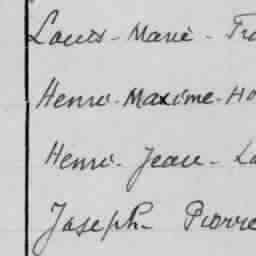 Louis - Marie - Fra
Henri - Maxime - Ho
Henri - Jean - Lo
Joseph - Pierre